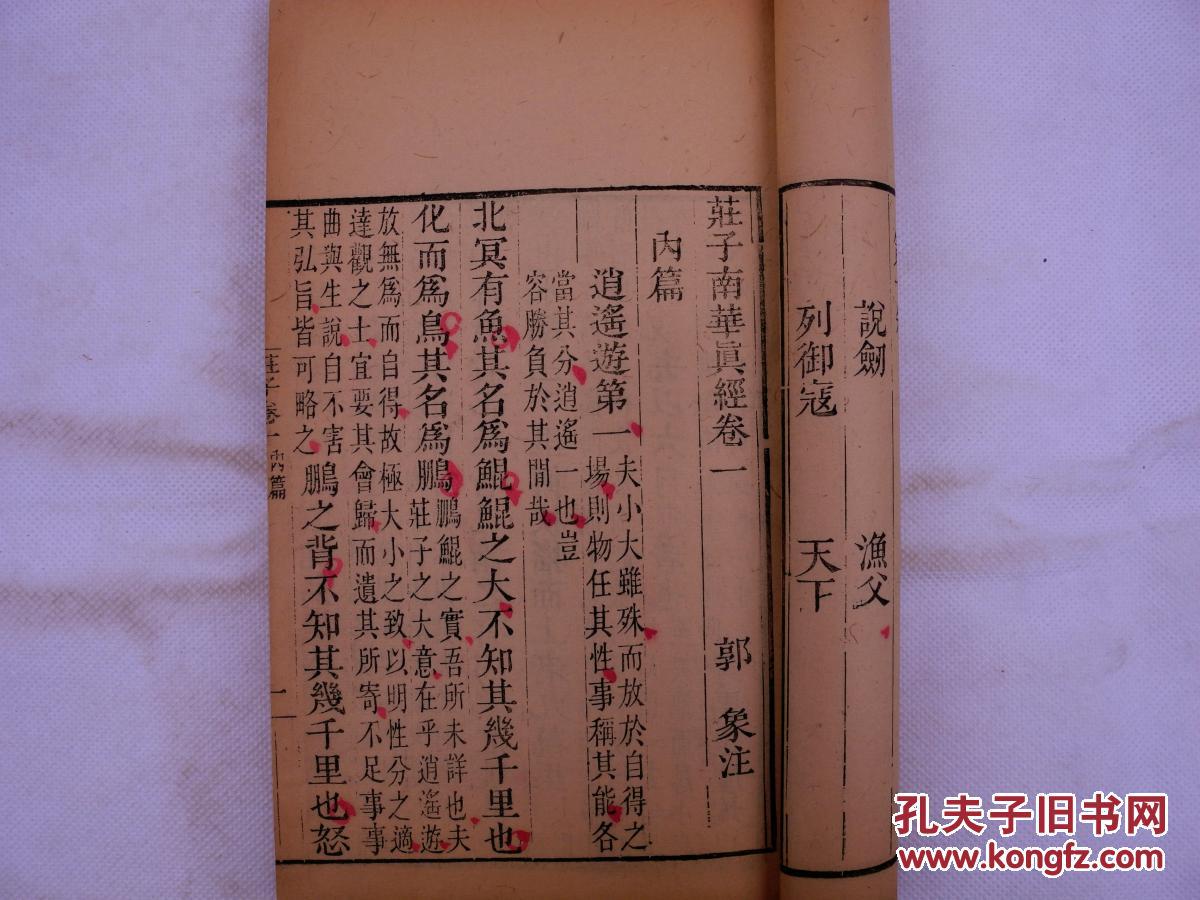 說劒 漁父
列御寇 天下
莊子南華眞經卷一
郭 象注
內篇
逍遙遊第一 夫小大雖殊而放於自得之
場則物任其性事稱其能各
當其分逍遙一也豈
容勝負於其閒哉
北冥有魚其名爲鯤鯤之大不知其幾千里也
化而爲鳥其名爲鵬 鵬鯤之實吾所未詳也夫
莊子之大意在乎逍遙遊
放無爲而自得故極大小之致以明性分之適
達觀之士宜要其會歸而遺其所寄不足事事
曲與生說自不害
其弘旨皆可略之 鵬之背不知其幾千里也怒
莊子卷一 內篇 一
孔夫子旧书网
www.kongfz.com